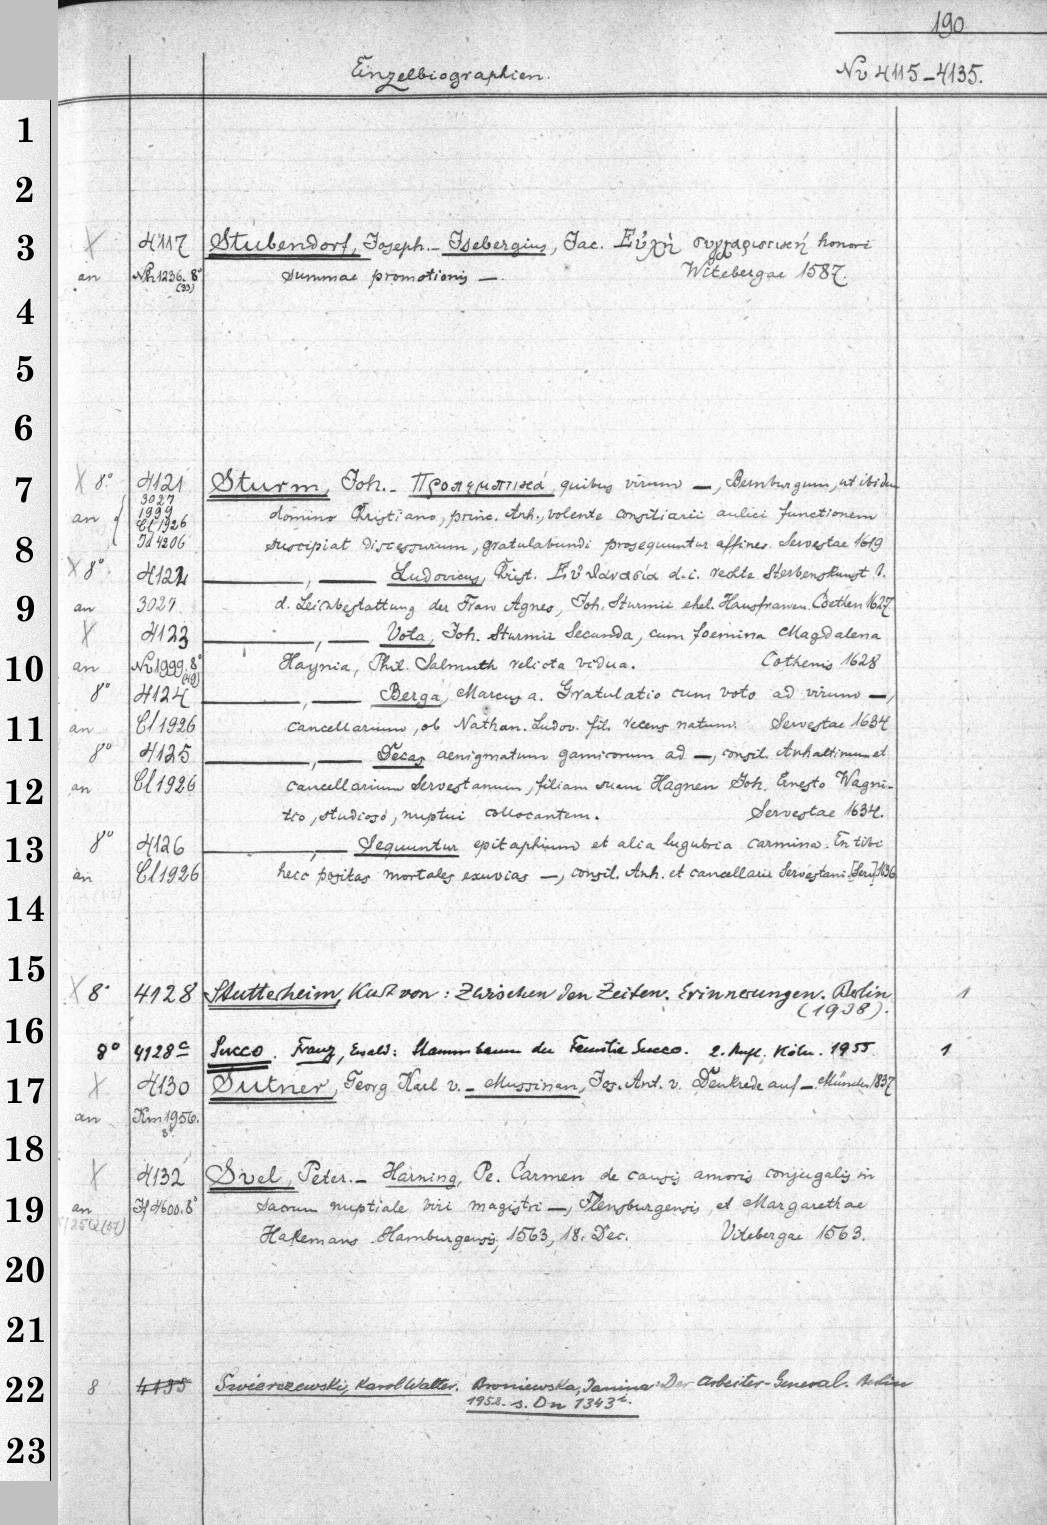 190
Einzelbiographien. Nv 4115-4135.
1
2
3 X 4117 Stubendorf, Joseph.- Isebergius, Jac. Εὐχὴ συγχαριστικὴ honori
an Nh 1236. 8° (33) summae promotionis —. Witebergae 1587.
4
5
6
7 X 8° 4121 Sturm, Joh.- Προπεμπτικά, quibus virum —, Bernburgum, ut ibidem
an { 3027 1999 Cl 1926 Id 4206 domino Christiano, princ. Anh., volente consiliarii aulici functionem
8 suscipiat discessurum, gratulabundi prosequuntur affines. Servestae 1619
X 8° 4122 —, — Ludovicus, Christ. Εὐθανασία d.i. rechte Sterbenskunst b.
9 an 3027 d. Leichbestattung der Frau Agnes, Joh. Sturmii ehel. Hausfrawen. Coethen 1627.
X 4123 —, — Vota, Joh. Sturmii Secunda, cum foemina Magdalena
10 an Nv 1999. 8° (49) Haynia, Phil. Salmuth relicta vidua. Cothenis 1628
8° 4124 —, — Berga, Marcus a. Gratulatio cum voto ad virum —,
11 an Cl 1926 cancellarium, ob Nathan. Ludov. fil. recens natum. Servestae 1634
8° 4125 —, — Decas aenigmatum gamicorum ad —, consil. Anhaltinum et
12 an Cl 1926 cancellarium Servestanum, filiam suam Hagnen Joh. Ernesto Wagni-
tio, studioso, nuptui collocantem. Servestae 1634.
13 8° 4126 —, — Sequuntur epitaphium et alia lugubria carmina. En tibi
an Cl 1926 heic positas mortales exuvias —, consil. Anh. et cancellarii Servestani. [Serv.] 1636
14
15
X 8° 4128 Stutterheim, Kurt von: Zwischen den Zeiten. Erinnerungen. Berlin 1
(1938).
16
8° 4128a Succo, Franz, Ewald: Stammbaum der Familie Succo. 2. Aufl. Köln. 1955 1
17 X 4130 Sutner, Georg Karl v. - Mussinan, Jos. Ant. v. Denkrede auf —. München 1837
an Km 1956. 8°
18
X 4132 Svel, Peter.- Harning, Pe. Carmen de causis amoris conjugalis in
19 an If 4600. 8° sacrum nuptiale viri magistri —, Flensburgensis, et Margarethae
Hakemans Hamburgensis, 1563, 18. Dec. Vitebergae 1563.
20
21
22 8 4135 Swierczewski, Karol Walter. Broniewska, Janina: Der Arbeiter-General. Berlin
1952. s. Dn 1343i.
23